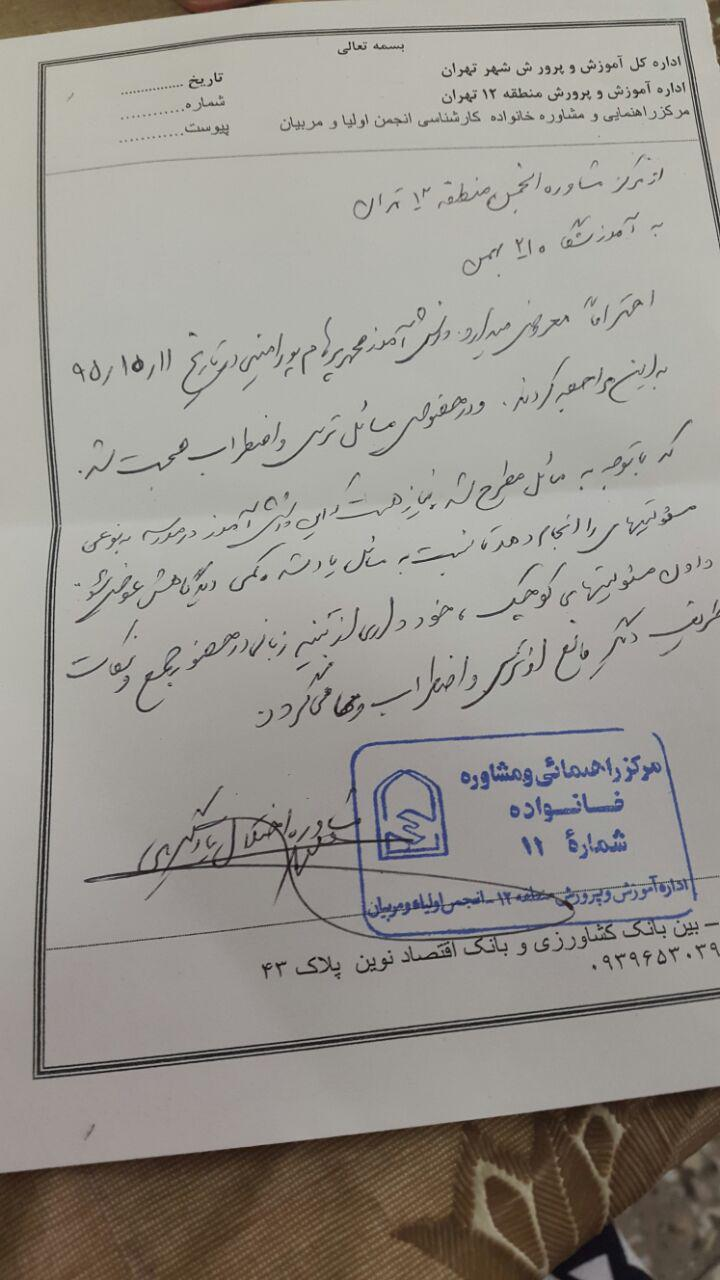 بسمه تعالی
اداره کل آموزش و پرورش شهر تهران
اداره آموزش و پرورش منطقه ۱۲ تهران
مرکز راهنمایی و مشاوره خانواده کارشناسی انجمن اولیا و مربیان
تاریخ ................
شماره............
پیوست............
از مرکز مشاوره انجمن منطقه ۱۲ تهران
به آموزشگاه ۲۱ بهمن
احتراماً معروض میدارد، دانش آموز پور امینی در تاریخ
به این مراجعه کردند. و در خصوص مسائل ترس و اضطراب صحبت شد.
که با توجه به مسائل مطرح شده نیاز هست که این دانش آموز در مدرسه به نوعی
مسئولیتهای را انجام دهد تا نسبت به مسائل یاد شده کمی دیدگاهش عوض شود.
دادن مسئولیتهای کوچک، خودداری از تنبیه زبانی در حضور جمع و نکات
ظریف دیگر مانع از ترس و اضطراب می گردد.
مشاوره اختلال یادگیری
مرکز راهنمائی و مشاوره
خانواده
شمارهٔ ۱۱
اداره آموزش و پرورش منطقه ۱۲ - انجمن اولیاء و مربیان
– بین بانک کشاورزی و بانک اقتصاد نوین پلاک ۴۳
۰۹۳۹۶۵۳۰۳۹